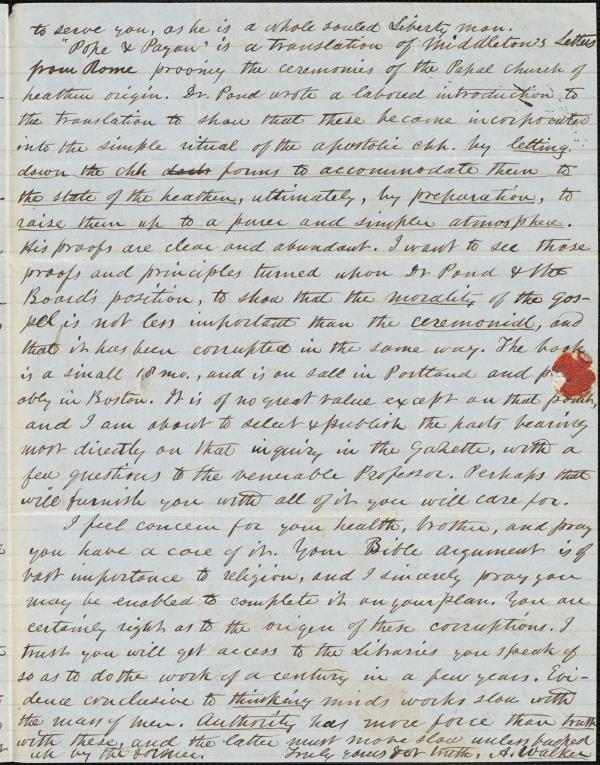 to serve you, as he is a whole souled Liberty man.
"Pope & Pagan" is a translation of Middleton's Letters
from Rome proving the ceremonies of the Papal church of
heathen origin. Dr. Pond wrote a labored introduction to
the translation to show that these became incorporated
into the simple ritual of the apostolic chh. by letting
down the chh forms to accommodate them to
the state of the heathen, ultimately, by preparation, to
raise them up to a purer and simpler atmosphere.
His proofs are clear and abundant. I want to see those
proofs and principles turned upon Dr Pond & the
Board's position, to show that the morality of the gos-
pel is not less important than the ceremonial, and
that it has been corrupted in the same way. The book
is a small 18mo., and is on sale in Portland and p
ably in Boston. It is of no great value except on that point,
and I am about to select & publish the parts bearing
most directly on that inquiry in the Gazette, with a
few questions to the venerable Professor. Perhaps that
will furnish you with all of it you will care for.
I feel concern for your health, brother, and pray
you have a care of it. Your Bible argument is of
vast importance to religion, and I sincerely pray you
may be enabled to complete it on your plan. You are
certainly right as to the origin of these corruptions. I
trust you will get access to the Libraries you speak of
so as to do the work of a century in a few years. Evi-
dence conclusive to thinking minds works slow with
the mass of men. Authority has more force than truth
with these, and the latter must move slow unless backed
up by the former. Truly yours for truth, A. Walker